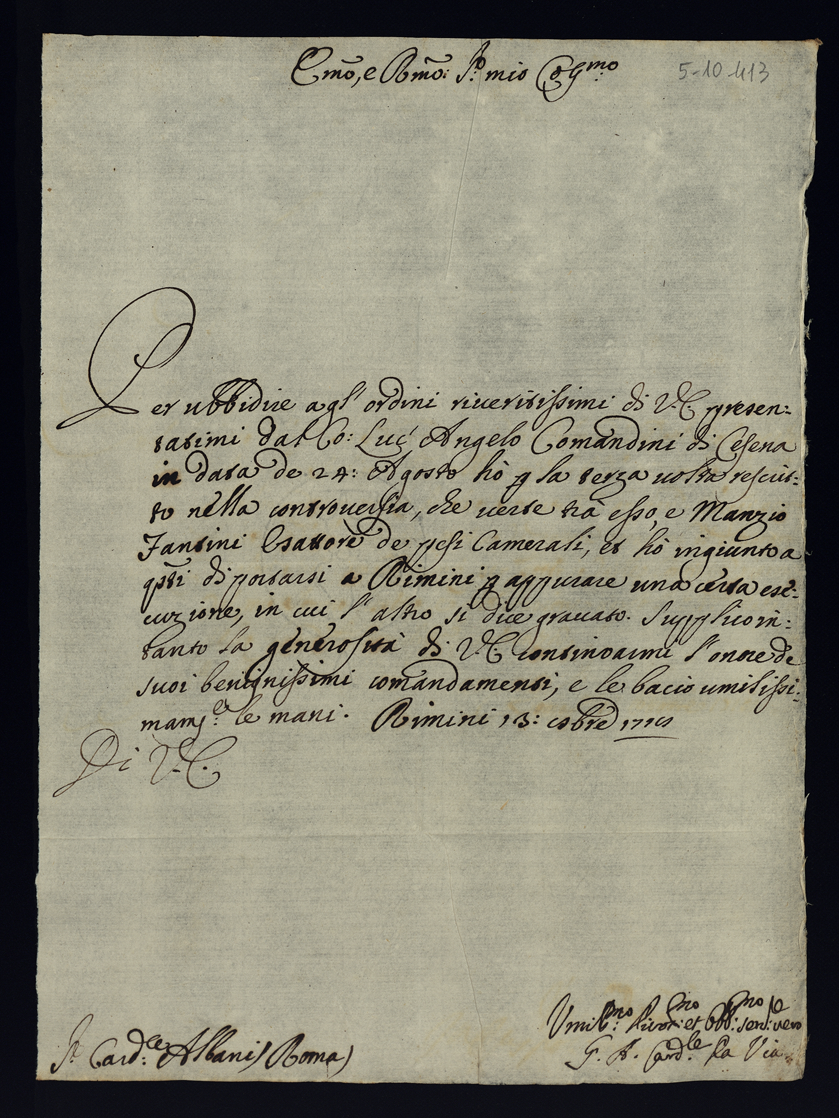 Emõ, e Rmõ: Sr mio Ossmo
5-10-413
Per ubbidire a gl' ordini riveritissimi di V.E. presen:
tatimi dal Co: Luc' Angelo Comandini di Cesena
in data de 24: Agosto hò p la terza volta rescrit:
to nella controversia, che verte trà esso, e Manzio
Fantini Esattore de pesi Camerali, et hò ingiunto a
qsti di portarsi a Rimini p appurare una certa ese:
cuzione, in cui l' altro si dice gravato. Supplico in:
tanto la generosità di V.E. continoarmi l' onore de
suoi benignissimi comandamenti, e le bacio umilissi:
mamte le mani. Rimini 13:
Di V.E.
Umilmo et Obbmo serv:e vero
Sr Card:le Albani / Roma /
G. A. Card:le Da Via